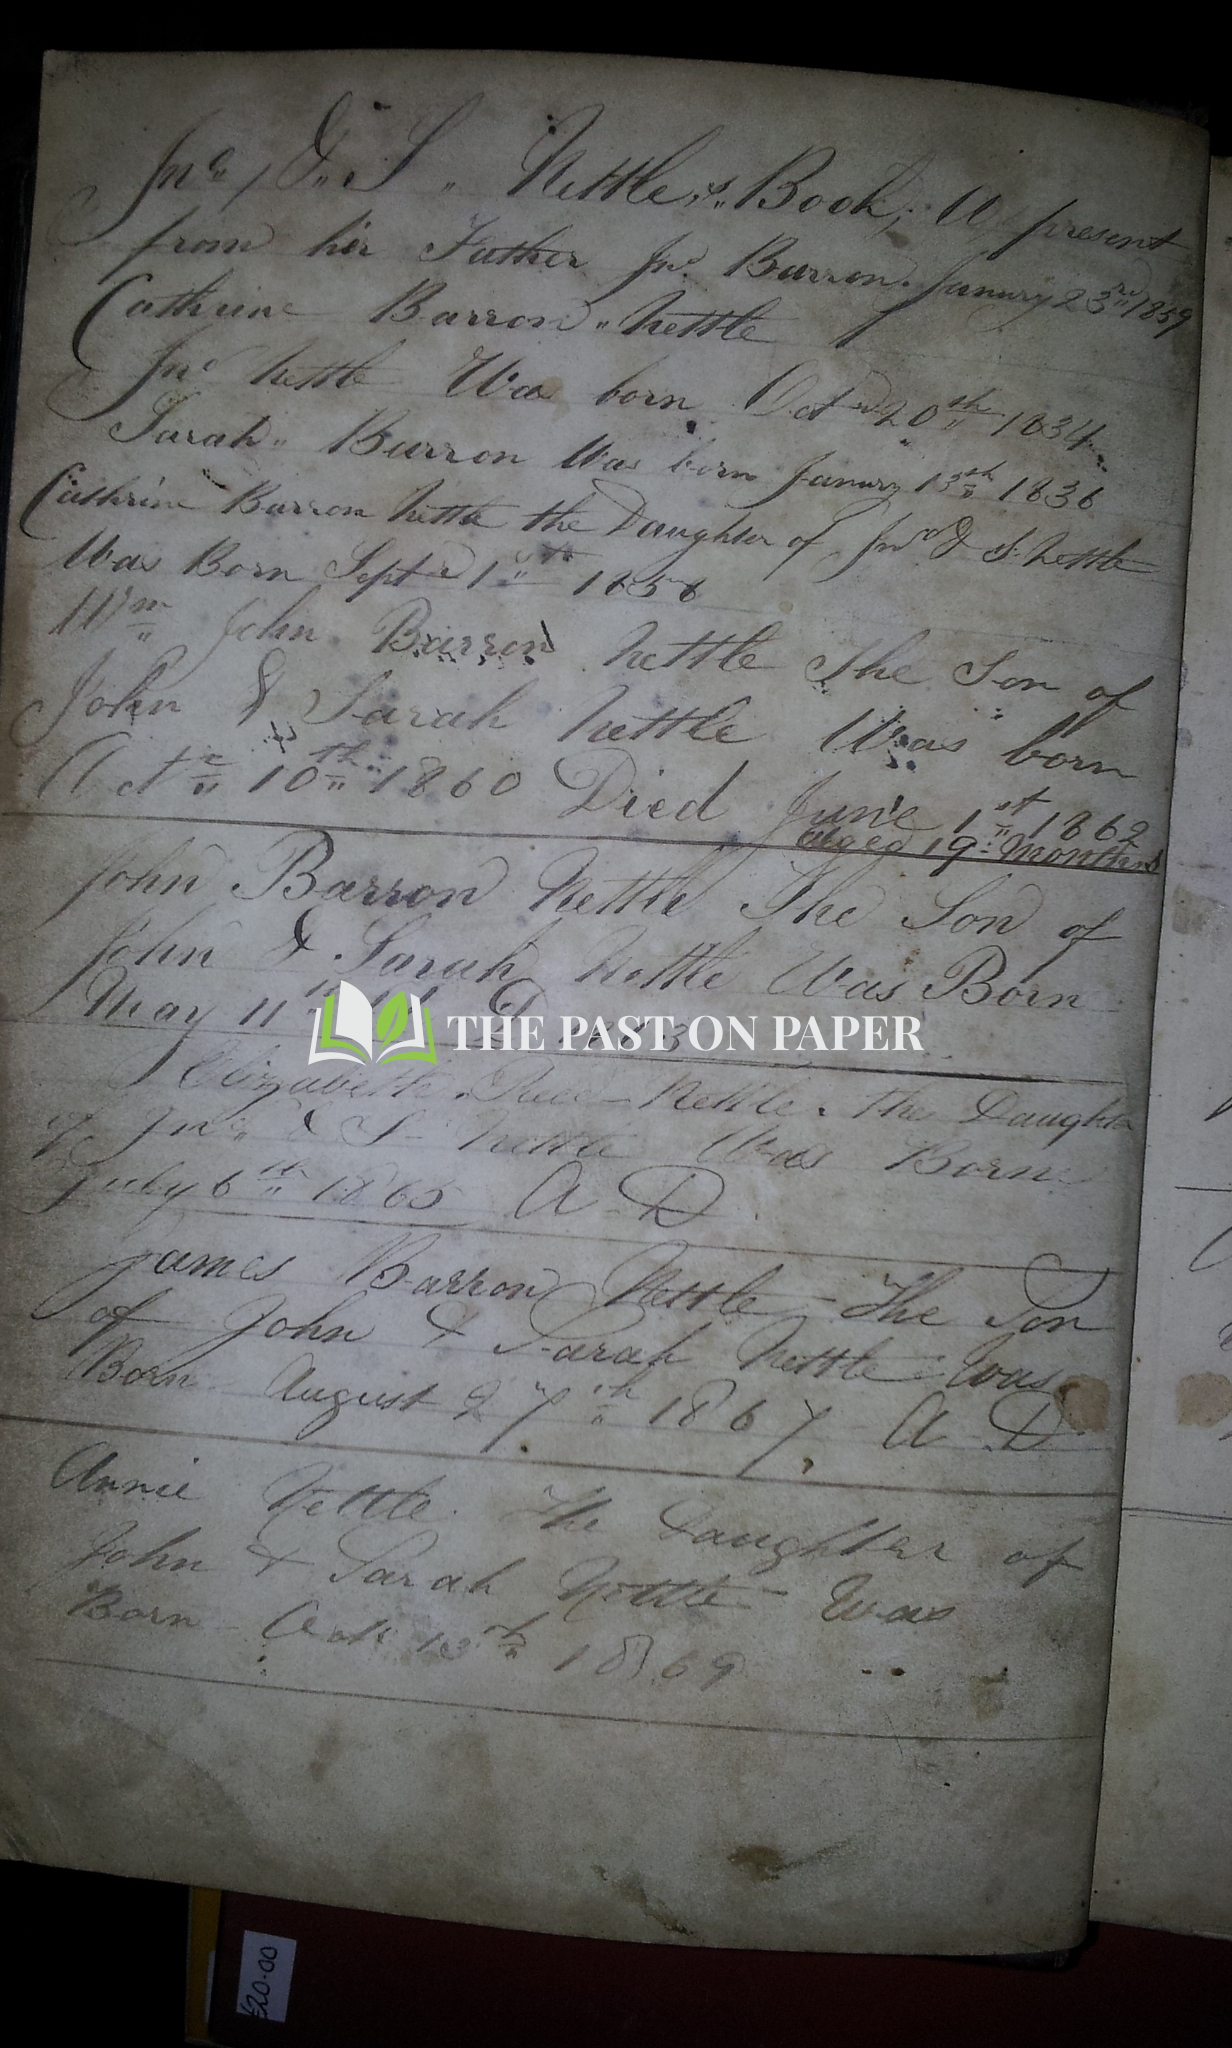 Jno. & S. Nettle,s. Book; A present
from her Father Jno. Barron. Janury 23rd 1859
Cathrine Barron Nettle
Jno Nettle Was born Oct 20th 1834
Sarah Barron Was born Janury 13th 1836
Cathrine Barron Nettle the Daughter of Jno & S. Nettle
Was Born Sept 1st 1858
Wm John Barron Nettle the Son of
John & Sarah Nettle Was born
Oct 10th 1860 Died June 1st 1862
Aged 19 Months
John Barron Nettle The Son of
John & Sarah Nettle Was Born
May 11th A D
THE PAST ON PAPER
Elizabeth Nettle. the Daughter
of Jno & S Nettle Was Born
July 6th 1865 A D
James Barron Nettle The Son
of John & Sarah Nettle Was
Born August 27th 1867 A D
Annie Nettle. The Daughter of
John & Sarah Nettle Was
Born Oct 13th 1869
£20.00